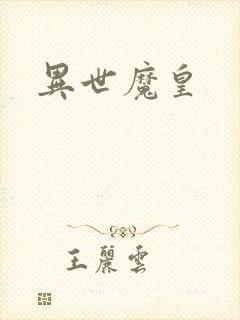 異世魔皇
王麗雲